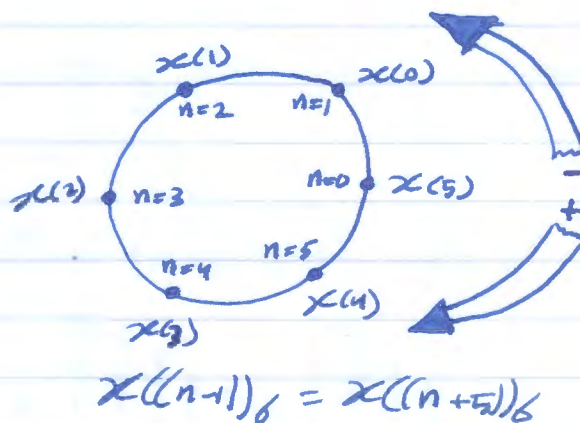 x(1) x(0)
n=2 n=1
x(2) n=3 n=0 x(5)
-
+
n=4 n=5
x(3) x(4)
x((n-1))6 = x((n+5))6